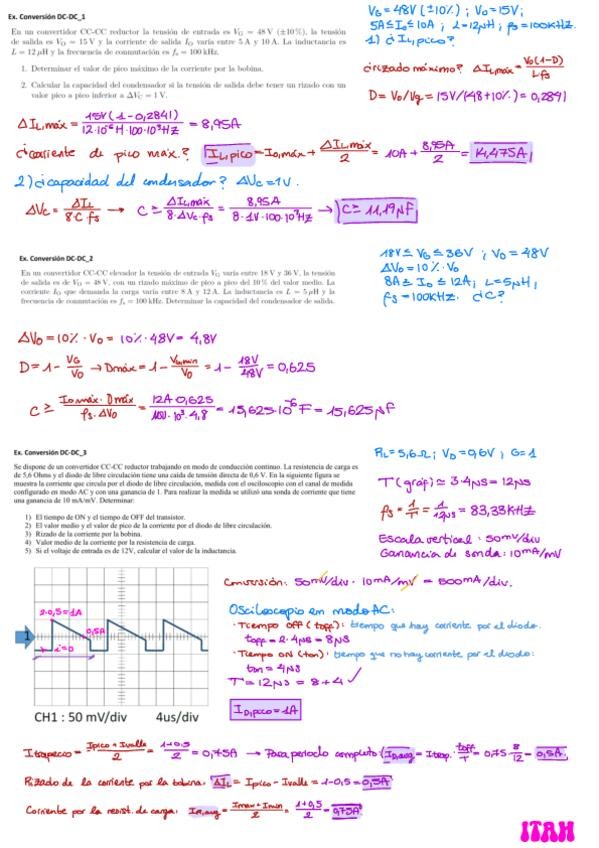 Ex. Conversión DC-DC_1
En un convertidor CC-CC reductor la tensión de entrada es V_G = 48 V (±10%), la tensión
de salida es V_O = 15 V y la corriente de salida I_O varía entre 5 A y 10 A. La inductancia es
L = 12 μH y la frecuencia de conmutación es f_s = 100 kHz.
1. Determinar el valor de pico máximo de la corriente por la bobina.
2. Calcular la capacidad del condensador si la tensión de salida debe tener un rizado con un
valor pico a pico inferior a ΔV_C = 1 V.
V_G = 48V (±10%) ; V_O = 15V;
5A ≤ I_O ≤ 10A ; L = 12μH ; f_s = 100kHz.
1) ¿ I_L,pico?
¿rizado máximo? ΔI_L,máx = V_O(1-D)/L f_s
D = V_O/V_g = 15V/(48+10%) = 0,2841
ΔI_L,máx = 15V(1-0,2841)/12·10^-6 H·100·10^3 Hz = 8,95A
¿corriente de pico máx.? I_L,pico = I_O,máx + ΔI_L,máx/2 = 10A + 8,95A/2 = 14,475A
2) ¿capacidad del condensador? ΔV_C = 1V.
ΔV_C = ΔI_L/8·C·f_s → C ≥ ΔI_L,máx/8·ΔV_C·f_s = 8,95A/8·1V·100·10^3Hz → C ≥ 11,19μF
Ex. Conversión DC-DC_2
En un convertidor CC-CC elevador la tensión de entrada V_G varía entre 18 V y 36 V, la tensión
de salida es de V_O = 48 V, con un rizado máximo de pico a pico del 10 % del valor medio. La
corriente I_O que demanda la carga varía entre 8 A y 12 A. La inductancia es L = 5 μH y la
frecuencia de conmutación es f_s = 100 kHz. Determinar la capacidad del condensador de salida.
18V ≤ V_G ≤ 36V ; V_O = 48V
ΔV_O = 10% · V_O
8A ≤ I_O ≤ 12A; L = 5μH;
f_s = 100kHz. ¿C?
ΔV_O = 10% · V_O = 10% · 48V = 4,8V
D = 1 - V_G/V_O → Dmáx = 1 - V_G,min/V_O = 1 - 18V/48V = 0,625
C ≥ I_O,máx · Dmáx/f_s · ΔV_O = = 15,625·10^-6 F = 15,625μF
Ex. Conversión DC-DC_3
Se dispone de un convertidor CC-CC reductor trabajando en modo de conducción continuo. La resistencia de carga es
de 5,6 Ohms y el diodo de libre circulación tiene una caída de tensión directa de 0,6 V. En la siguiente figura se
muestra la corriente que circula por el diodo de libre circulación, medida con el osciloscopio con el canal de medida
configurado en modo AC y con una ganancia de 1. Para realizar la medida se utilizó una sonda de corriente que tiene
una ganancia de 10 mA/mV. Determinar:
1) El tiempo de ON y el tiempo de OFF del transistor.
2) El valor medio y el valor de pico de la corriente por el diodo de libre circulación.
3) Rizado de la corriente por la bobina.
4) Valor medio de la corriente por la resistencia de carga.
5) Si el voltaje de entrada es de 12V, calcular el valor de la inductancia.
R_L = 5,6Ω ; V_D = 0,6V ; G = 1
T (gráf) ≃ 3·4μs = 12μs
f_s = 1/T = 1/12μs = 83,33kHz
Escala vertical: 50mV/div
Ganancia de sonda: 10mA/mV
Conversión: 50mV/div · 10mA/mV = 500mA/div.
Osciloscopio en modo AC:
· Tiempo OFF (toff): tiempo que hay corriente por el diodo.
toff = 2·4μs = 8μs
· Tiempo ON (ton): tiempo que no hay corriente por el diodo:
ton = 4μs
T = 12μs = 8 + 4 ✓
I_D,pico = 1A
2·0,5 = 1A
0,5A
i=0
1
CH1 : 50 mV/div 4us/div
Itrapecio = Ipico + Ivalle/2 = 1+0,5/2 = 0,75A → Para periodo completo: I_D,avg = Itrap. · toff/T = 0,75 · 8/12 = 0,5A
Rizado de la corriente por la bobina: ΔI_L = Ipico - Ivalle = 1-0,5 = 0,5A
Corriente por la resist. de carga: I_R,avg = Imax + Imin/2 = 1+0,5/2 = 0,75A
ITAH